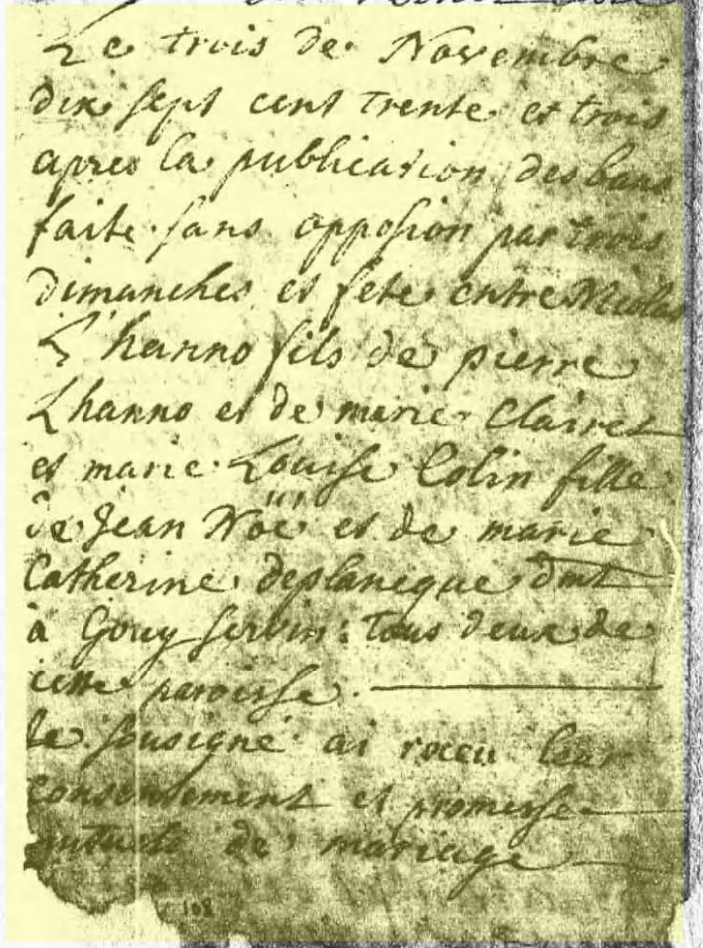 Le trois de Novembre
dix sept cent trente et trois
apres la publication des bans
faite sans opposion par trois
dimanches et fete entre Nicolas
L'hanno fils de pierre
Lhanno et de marie Clairet
et marie Louise Colin fille
de Jean Noë et de marie
Catherine deplaneque dmt
à Gouy servin: tous deux de
cette paroisse.
Je sousigné ai receu leur
consentement et promesse
mutuele de mariage
108